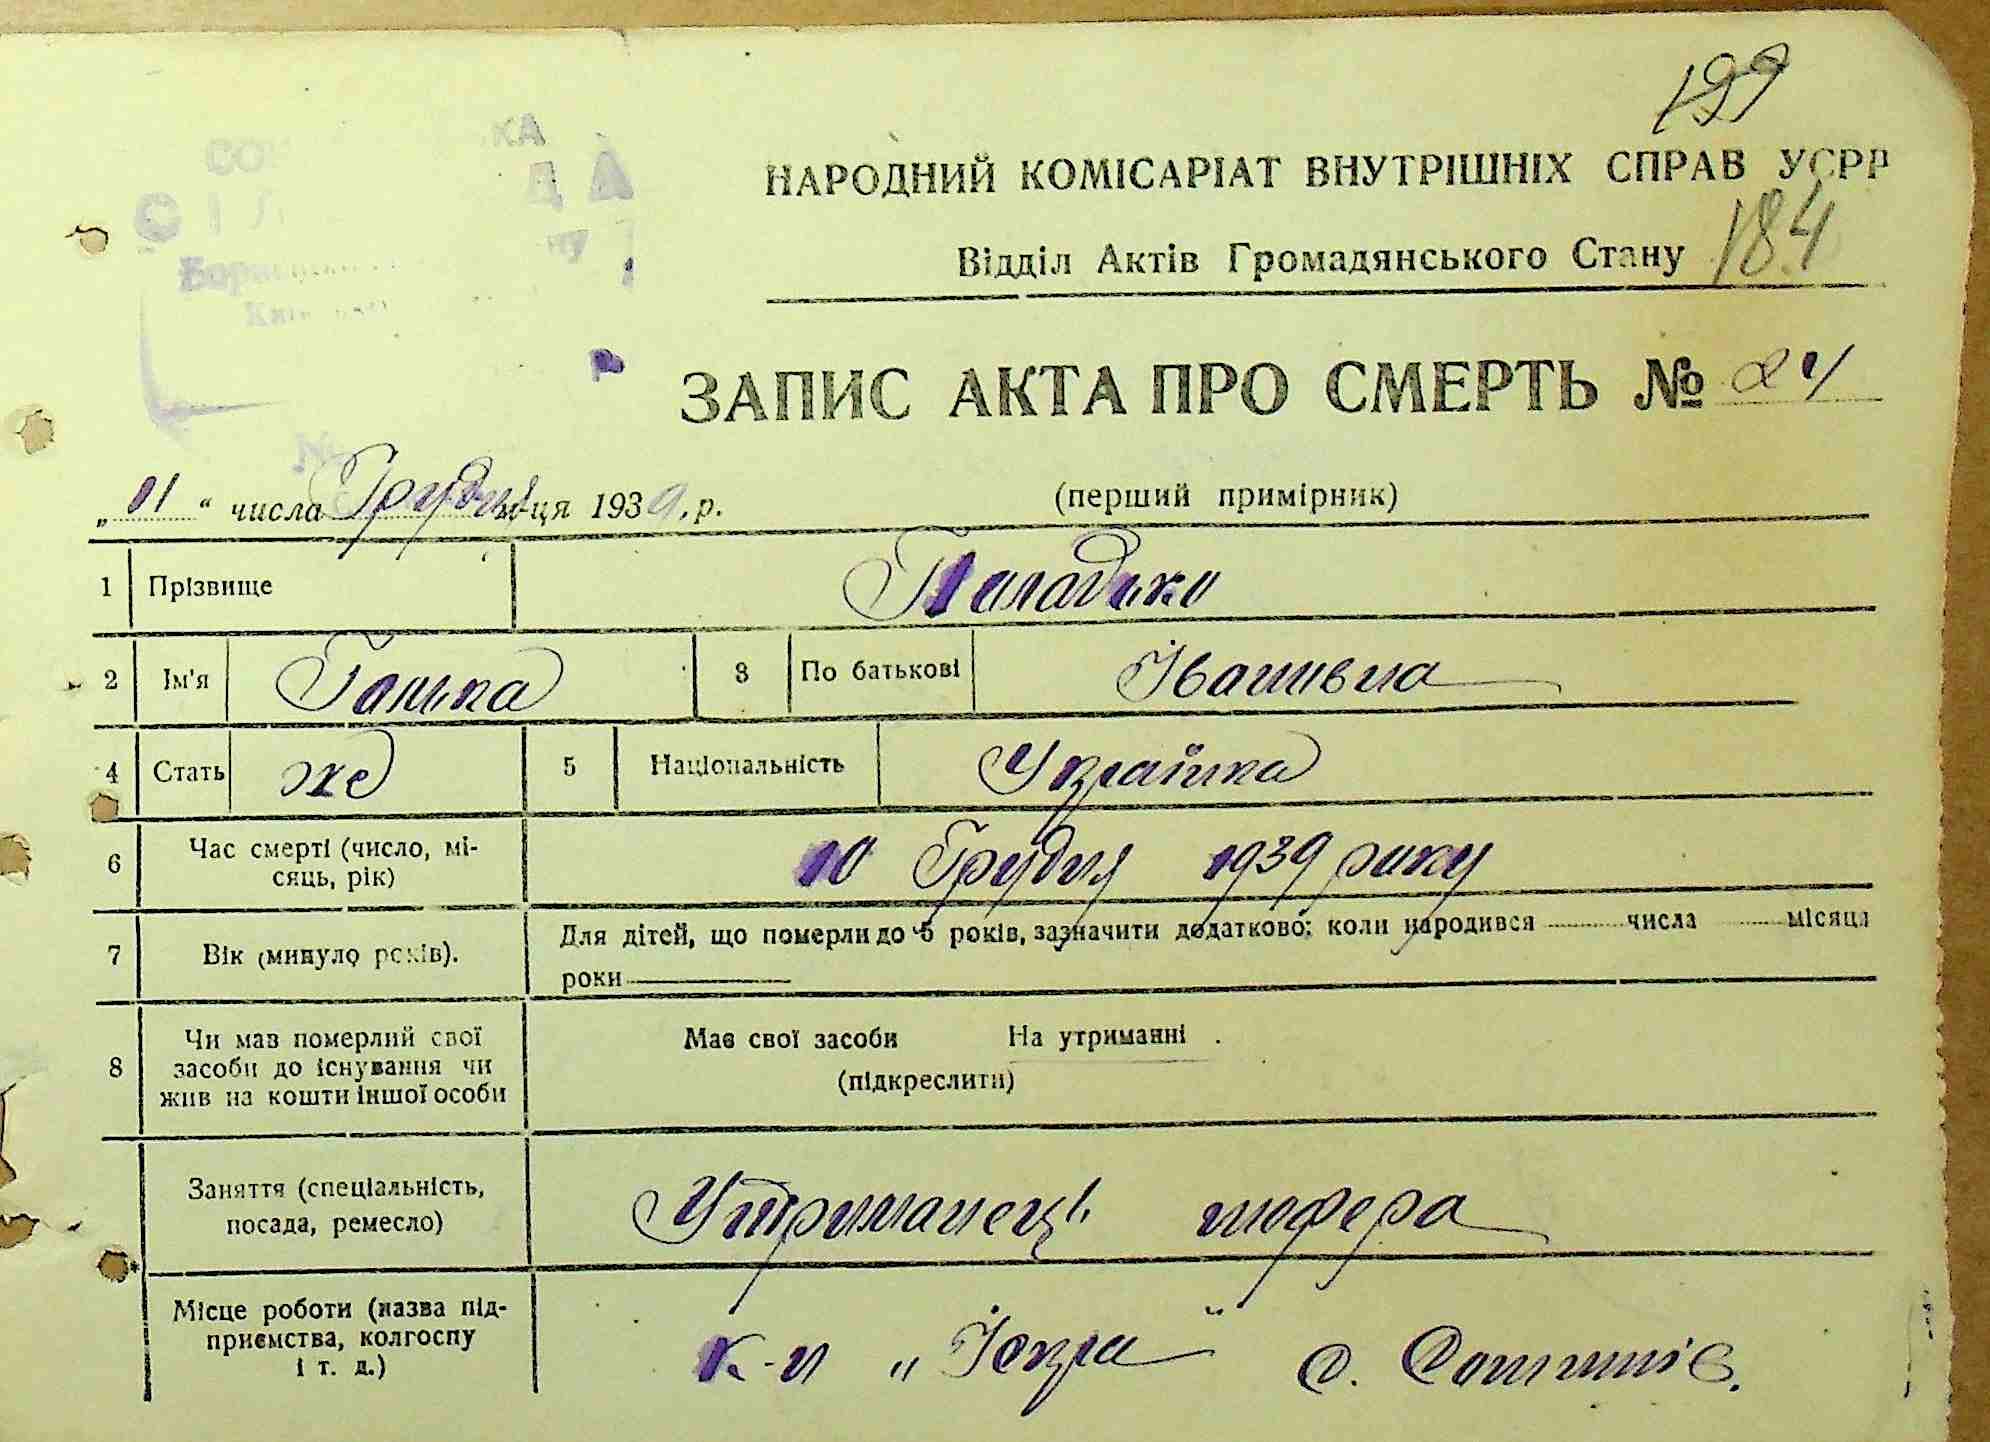 199
НАРОДНИЙ КОМІСАРІАТ ВНУТРІШНІХ СПРАВ УСРР
Відділ Актів Громадянського Стану
184
ЗАПИС АКТА ПРО СМЕРТЬ № 24
„11“ числа Грудня м-ця 1939.р.
(перший примірник)
1 Прізвище
2 Ім'я Ганна 3 По батькові Іванівна
4 Стать же 5 Національність Українка
6 Час смерті (число, мі-
сяць, рік)
10 Грудня 1939 року
7 Вік (минуло років).
Для дітей, що померли до 5 років, зазначити додатково: коли народився числа місяця
роки
8 Чи мав померлий свої
засоби до існування чи
жив на кошти іншої особи
Має свої засоби На утриманні .
(підкреслити)
Заняття (спеціальність,
посада, ремесло)
Утриманець шофера
Місце роботи (назва під-
приємства, колгоспу
і т. д.)
к-п „Іскра" с. Сошників.